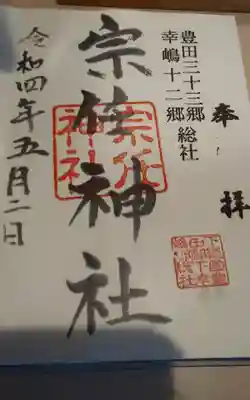 奉拝
豊田三十三郷
幸嶋十二郷 総社
宗任神社
宗任神社
令和四年五月二日